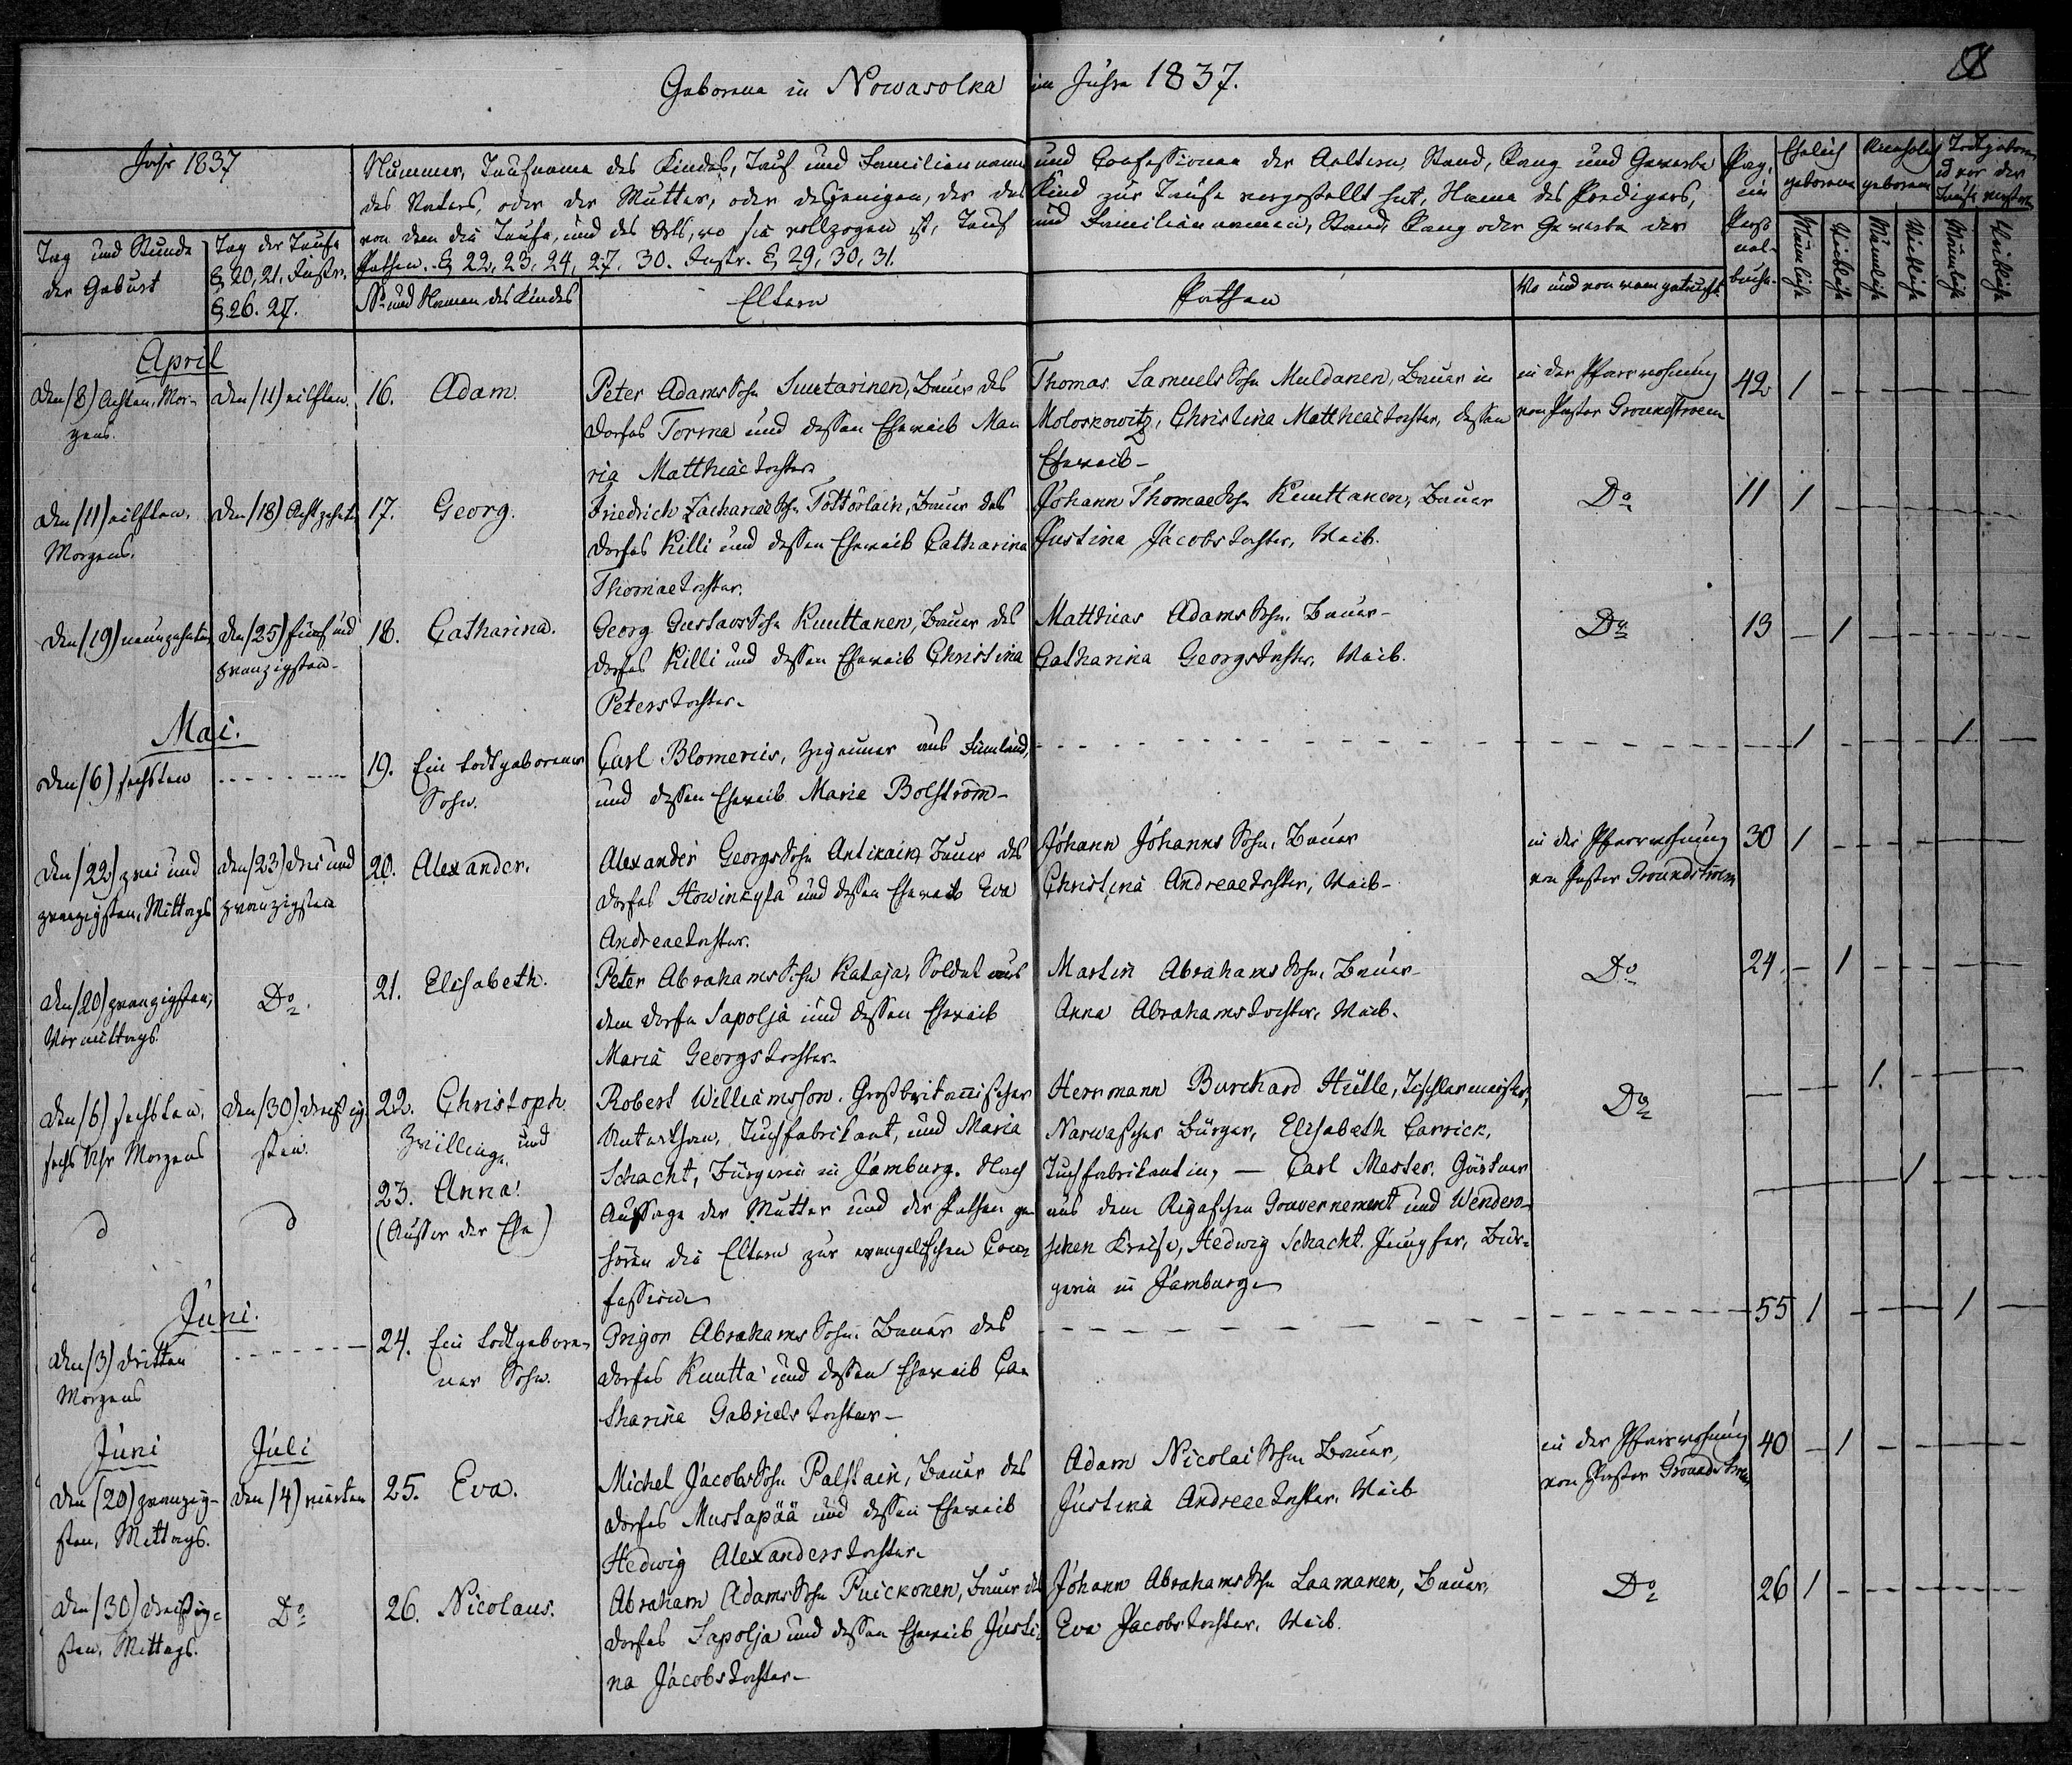 Geborene in Nowasolka im Jahre 1837.
Jahr 1837
Tag und Stunde
der Geburt
Tag der Taufe
§ 20, 21. Instr.
§. 26. 27.
Nummer, Taufname des Kindes, Tauf und Familiennamen und Confessionen der Aeltern, Stand, Rang und Gewerbe
des Vaters, oder der Mutter, oder desjenigen, der das Kind zur Taufe vorgestellt hat, Name des Predigers,
von dem die Taufe, und des Orts, wo sie vollzogen ist, Tauf und Familiennamen, Stand, Rang oder Gewerbe der
Pathen. § 22, 23, 24, 27. 30. Instr. § 29, 30, 31.
No und Namen des Kindes
Eltern
Pathen
Wo und von wem getauft.
Pag.
im
Perso
nal-
buche.
Ehelich
geborene
Unehelich
geborene
Todtgeboren
und vor der
Taufe verstorben
Männlich
Weiblich
Männlich
Weiblich
Männlich
Weiblich
April
den (8) Achten, Mor-
gens.
den (11) eilften.
16. Adam.
Peter Adams Sohn Suutarinen, Bauer des
Dorfes Torma und dessen Eheweib Ma-
ria Matthiae Tochter
Thomas Samuels Sohn Muldanen, Bauer in
Moloskowitz, Christina Matthiae Tochter, dessen
Eheweib-
in der Pfarrwohnung
von Pastor Groundstroem
42 1
den (11) eilften,
Morgens.
den (18) Achtzehnten
17. Georg.
Friedrich Zachariae Sohn Töttörläin, Bauer des
Dorfes Killi und dessen Eheweib Catharina
Thomae Tochter.
Johann Thomae Sohn Kuuttanen, Bauer
Justina Jacobs Tochter, Weib.
Do
11 1
den (19) neunzehnten
den (25) fünf und
zwanzigsten-
18. Catharina.
Georg Gustavs Sohn Kuuttanen, Bauer des
Dorfes Killi und dessen Eheweib Christina
Peters Tochter-
Matthias Adams Sohn, Bauer-
Catharina Georgs Tochter, Weib.
Do
13 - 1
Mai.
den (6) sechsten
19. Ein todtgeborener
Sohn.
Carl Blomerus, Zigeuner aus Finnland,
und dessen Eheweib Maria Bolström-
1 1
den (22) zwei und
zwanzigsten, Mittags
den (23) drei und
zwanzigsten
20. Alexander.
Alexander Georgs Sohn Antikain, Bauer des
Dorfes Howinkylä und dessen Eheweib Eva
Andreae Tochter.
Johann Johanns Sohn, Bauer
Christina Andreae Tochter, Weib-
in der Pfarrwohnung
von Pastor Groundstroem
30 1
den (20) zwanzigsten,
Vormittags
Do.
21. Elisabeth.
Peter Abrahams Sohn Kataja, Soldat aus
dem Dorfe Sapolja und dessen Eheweib
Maria Georgs Tochter-
Martin Abrahams Sohn, Bauer-
Anna Abrahams Tochter, Weib.
Do
24. - 1
den (6) sechsten,
sechs Uhr Morgens
den (30) dreißig
sten.
22. Christoph
Zwillinge, und
23. Anna.
(Ausser der Ehe)
Robert Williamsson, Großbritannischer
Unterthan, Tuchfabrikant, und Maria
Schacht, Bürgerin in Jamburg. Nach
Aussage der Mutter und der Pathen ge-
hören die Eltern zur evangelischen Con-
fession
Herrmann Burchard Hülle, Tischlermeister,
Narwascher Bürger, Elisabeth Carrick,
Tuchfabrikantin, - Carl Mester, Gärtner
aus dem Rigaschen Gouvernement und Wenden-
schen Kreise, Hedwig Schacht, Jungfer, Bür-
gerin in Jamburg
Do
1.
1
Juni.
den (3) dritten
Morgens
24. Ein todtgebore-
ner Sohn.
Grigor Abrahams Sohn, Bauer des
Dorfes Kuutta und dessen Eheweib Ca-
tharina Gabriels Tochter-
55 1 1
Juni
Juli
den (20) zwanzig-
sten, Mittags.
den (4) vierten
25. Eva.
Michel Jacobs Sohn Palstain, Bauer des
Dorfes Mustapää und dessen Eheweib
Hedwig Alexanders Tochter
Adam Nicolai Sohn, Bauer,
Justina Andreae Tochter, Weib
in der Pfarrwohnung
von Pastor Groundstroem
40 - 1
den (30) dreißig-
sten, Mittags.
Do
26. Nicolaus.
Abraham Adams Sohn Puickonen, Bauer des
Dorfes Sapolja und dessen Eheweib Justi-
na Jacobs Tochter-
Johann Abrahams Sohn Laamanen, Bauer,
Eva Jacobs Tochter, Weib.
Do
26 1